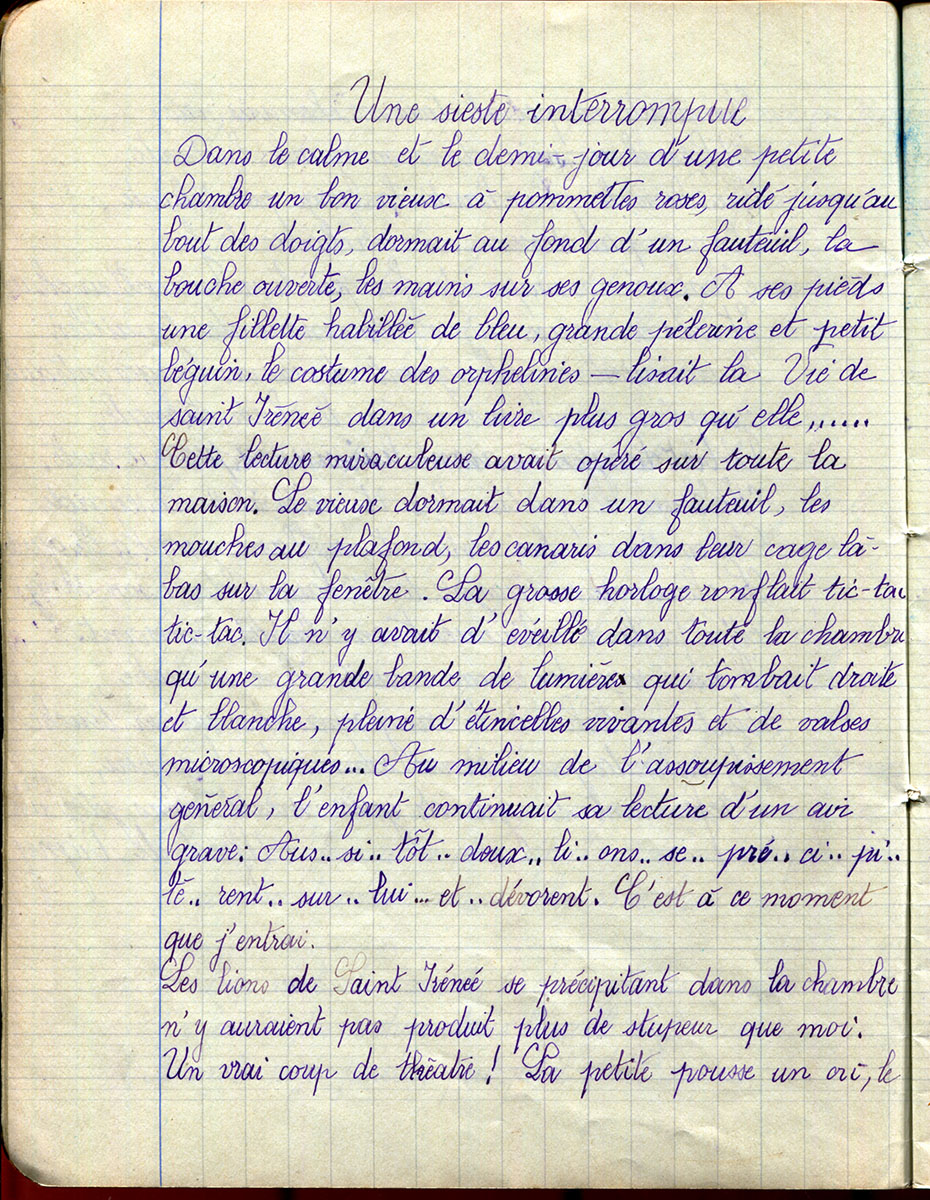 Une sieste interrompue
Dans le calme et le demi-jour d'une petite
chambre un bon vieux à pommettes roses, ridé jusqu'au
bout des doigts, dormait au fond d'un fauteuil, la
bouche ouverte, les mains sur ses genoux. A ses pieds
une fillette habillée de bleu, grande pélerine et petit
béguin, le costume des orphelines — lisait la Vie de
saint Irénée dans un livre plus gros qu'elle,.....
Cette lecture miraculeuse avait opéré sur toute la
maison. Le vieux dormait dans un fauteuil, les
mouches au plafond, les canaris dans leur cage là-
bas sur la fenêtre. La grosse horloge ronflait tic-tac
tic-tac. Il n'y avait d'éveillé dans toute la chambre
qu'une grande bande de lumière qui tombait droite
et blanche, pleine d'étincelles vivantes et de valses
microscopiques... Au milieu de l'assoupissement
général, l'enfant continuait sa lecture d'un air
grave: Aus..si..tôt..doux..li..ons..se..pré..ci..pi..
tè..rent..sur..lui...et..dévorent. C'est à ce moment
que j'entrai.
Les lions de Saint Irénée se précipitant dans la chambre
n'y auraient pas produit plus de stupeur que moi.
Un vrai coup de théatre! La petite pousse un cri, le